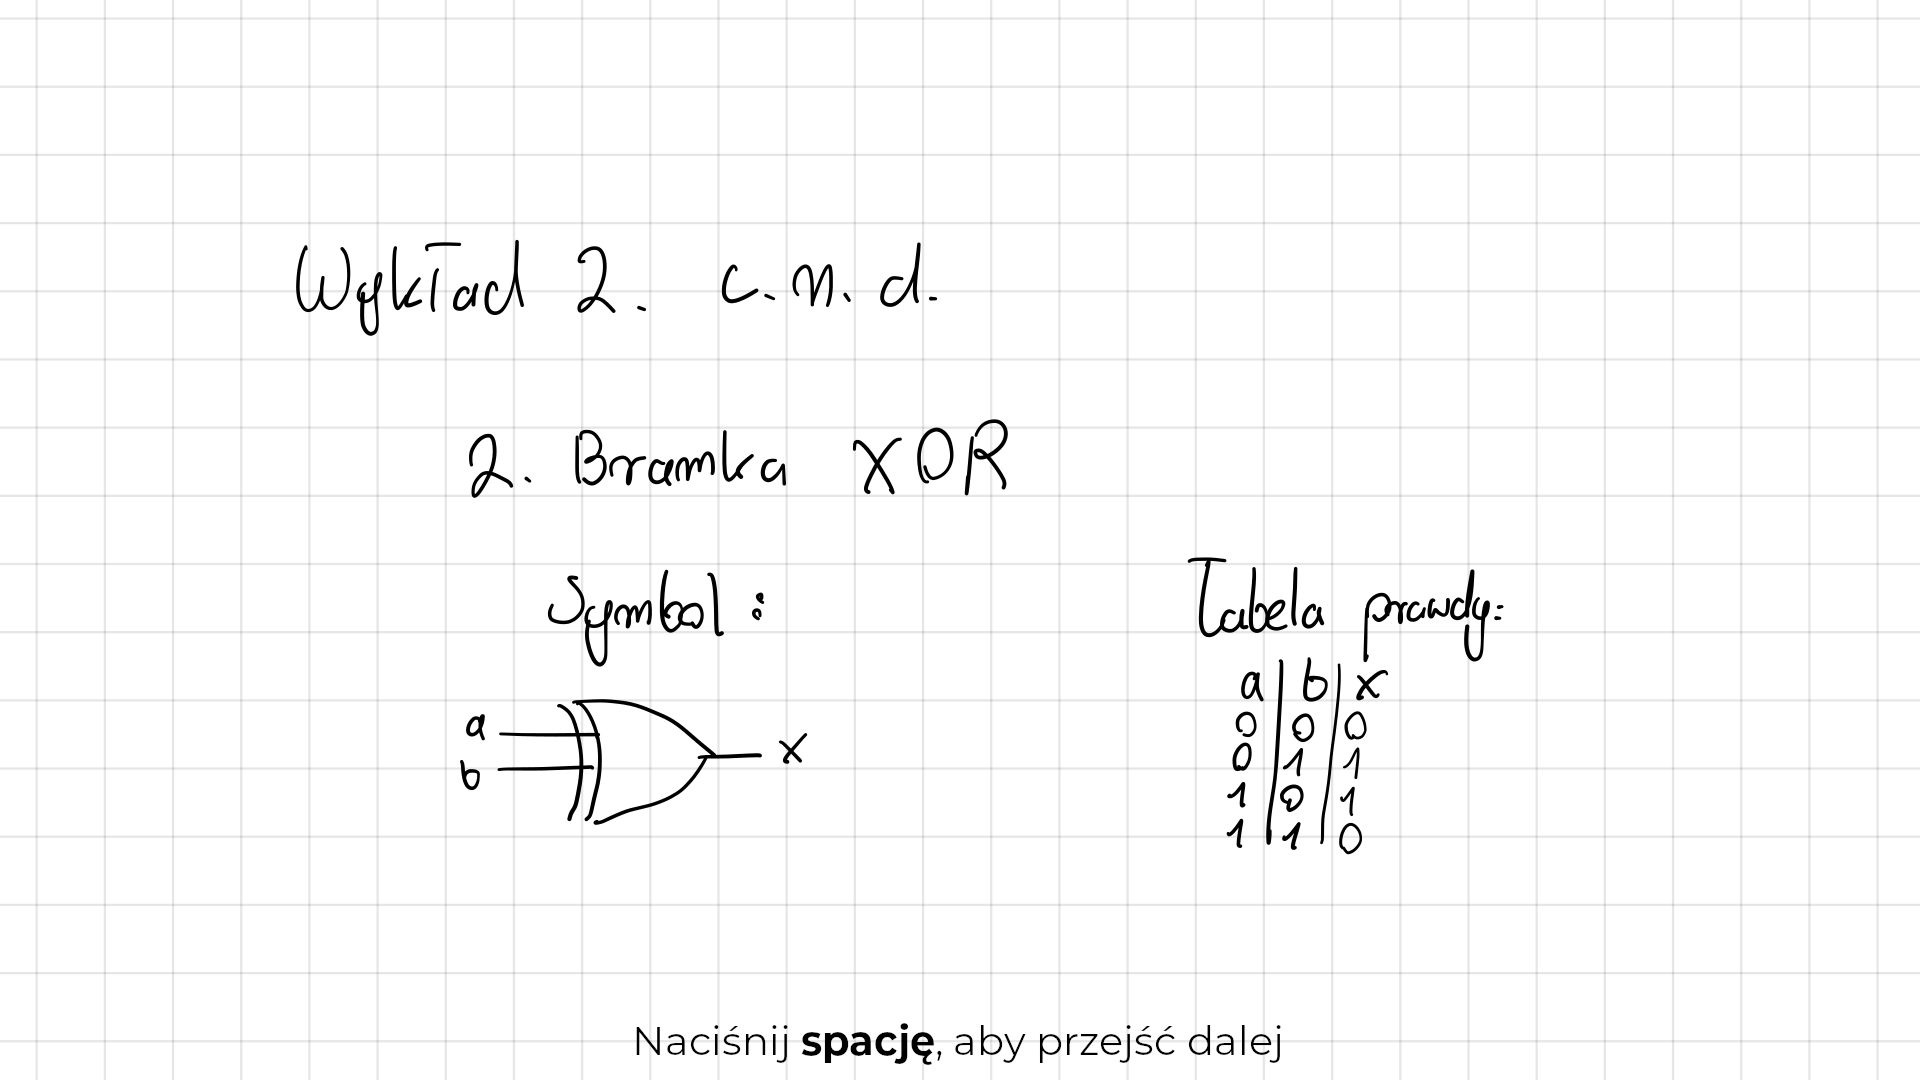 Wykład 2. c.n.d.
2. Bramka XOR
Symbol:
a
b
x
Tabela prawdy:
a b x
0 0 0
0 1 1
1 0 1
1 1 0
Naciśnij spację, aby przejść dalej